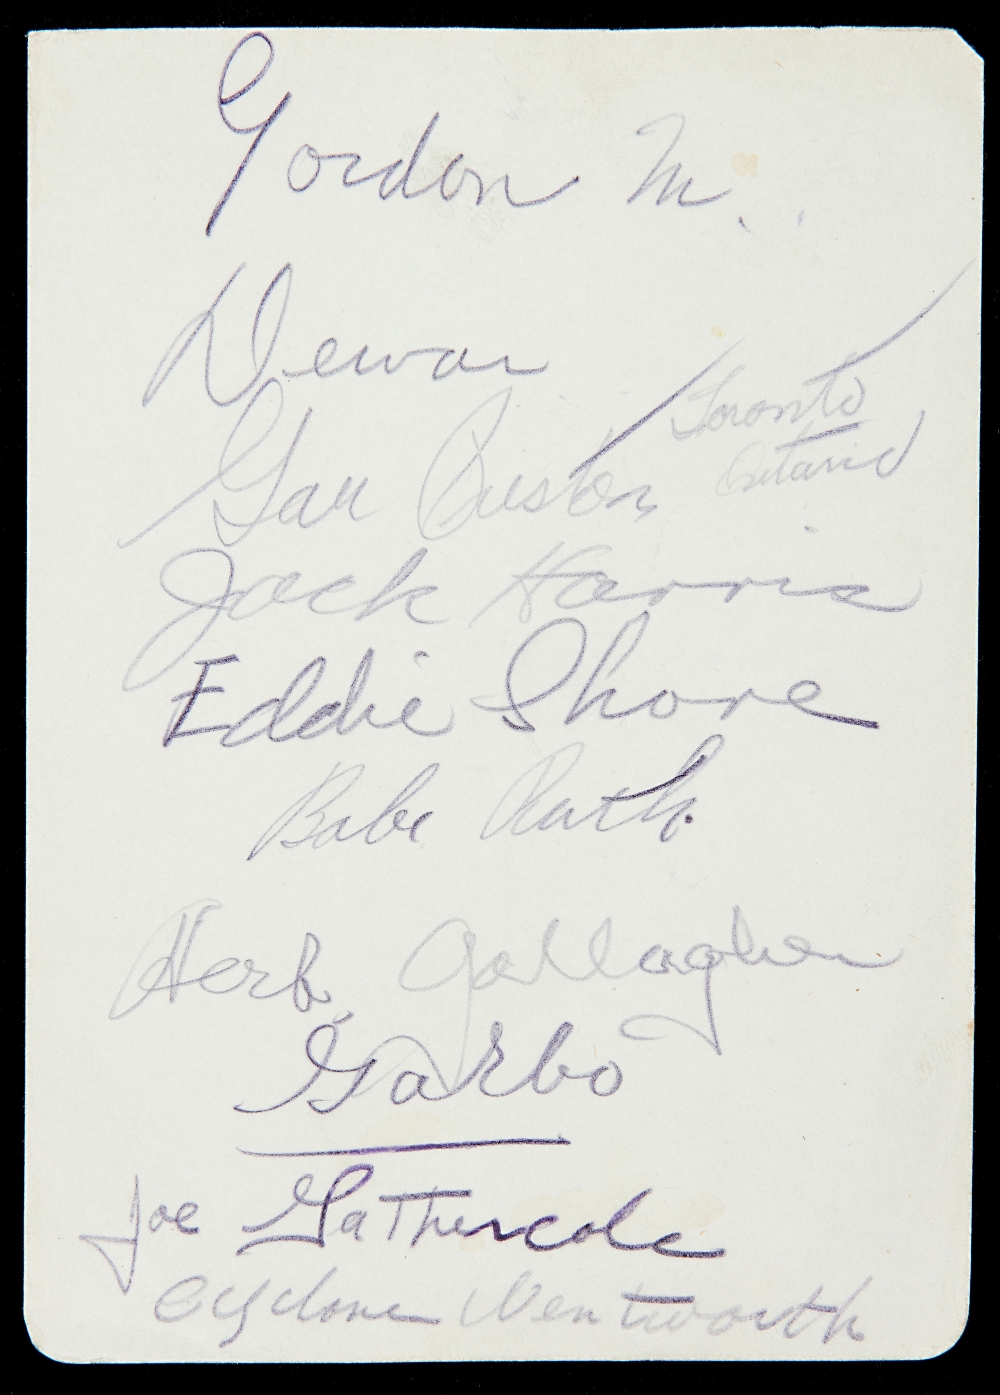 Gordon M.
Dewar
Toronto
Ontario
Jack Harris
Eddie Shore
Babe Ruth
Herb Gallagher
Garbo
Joe Gathercole
Cyclone Wentworth